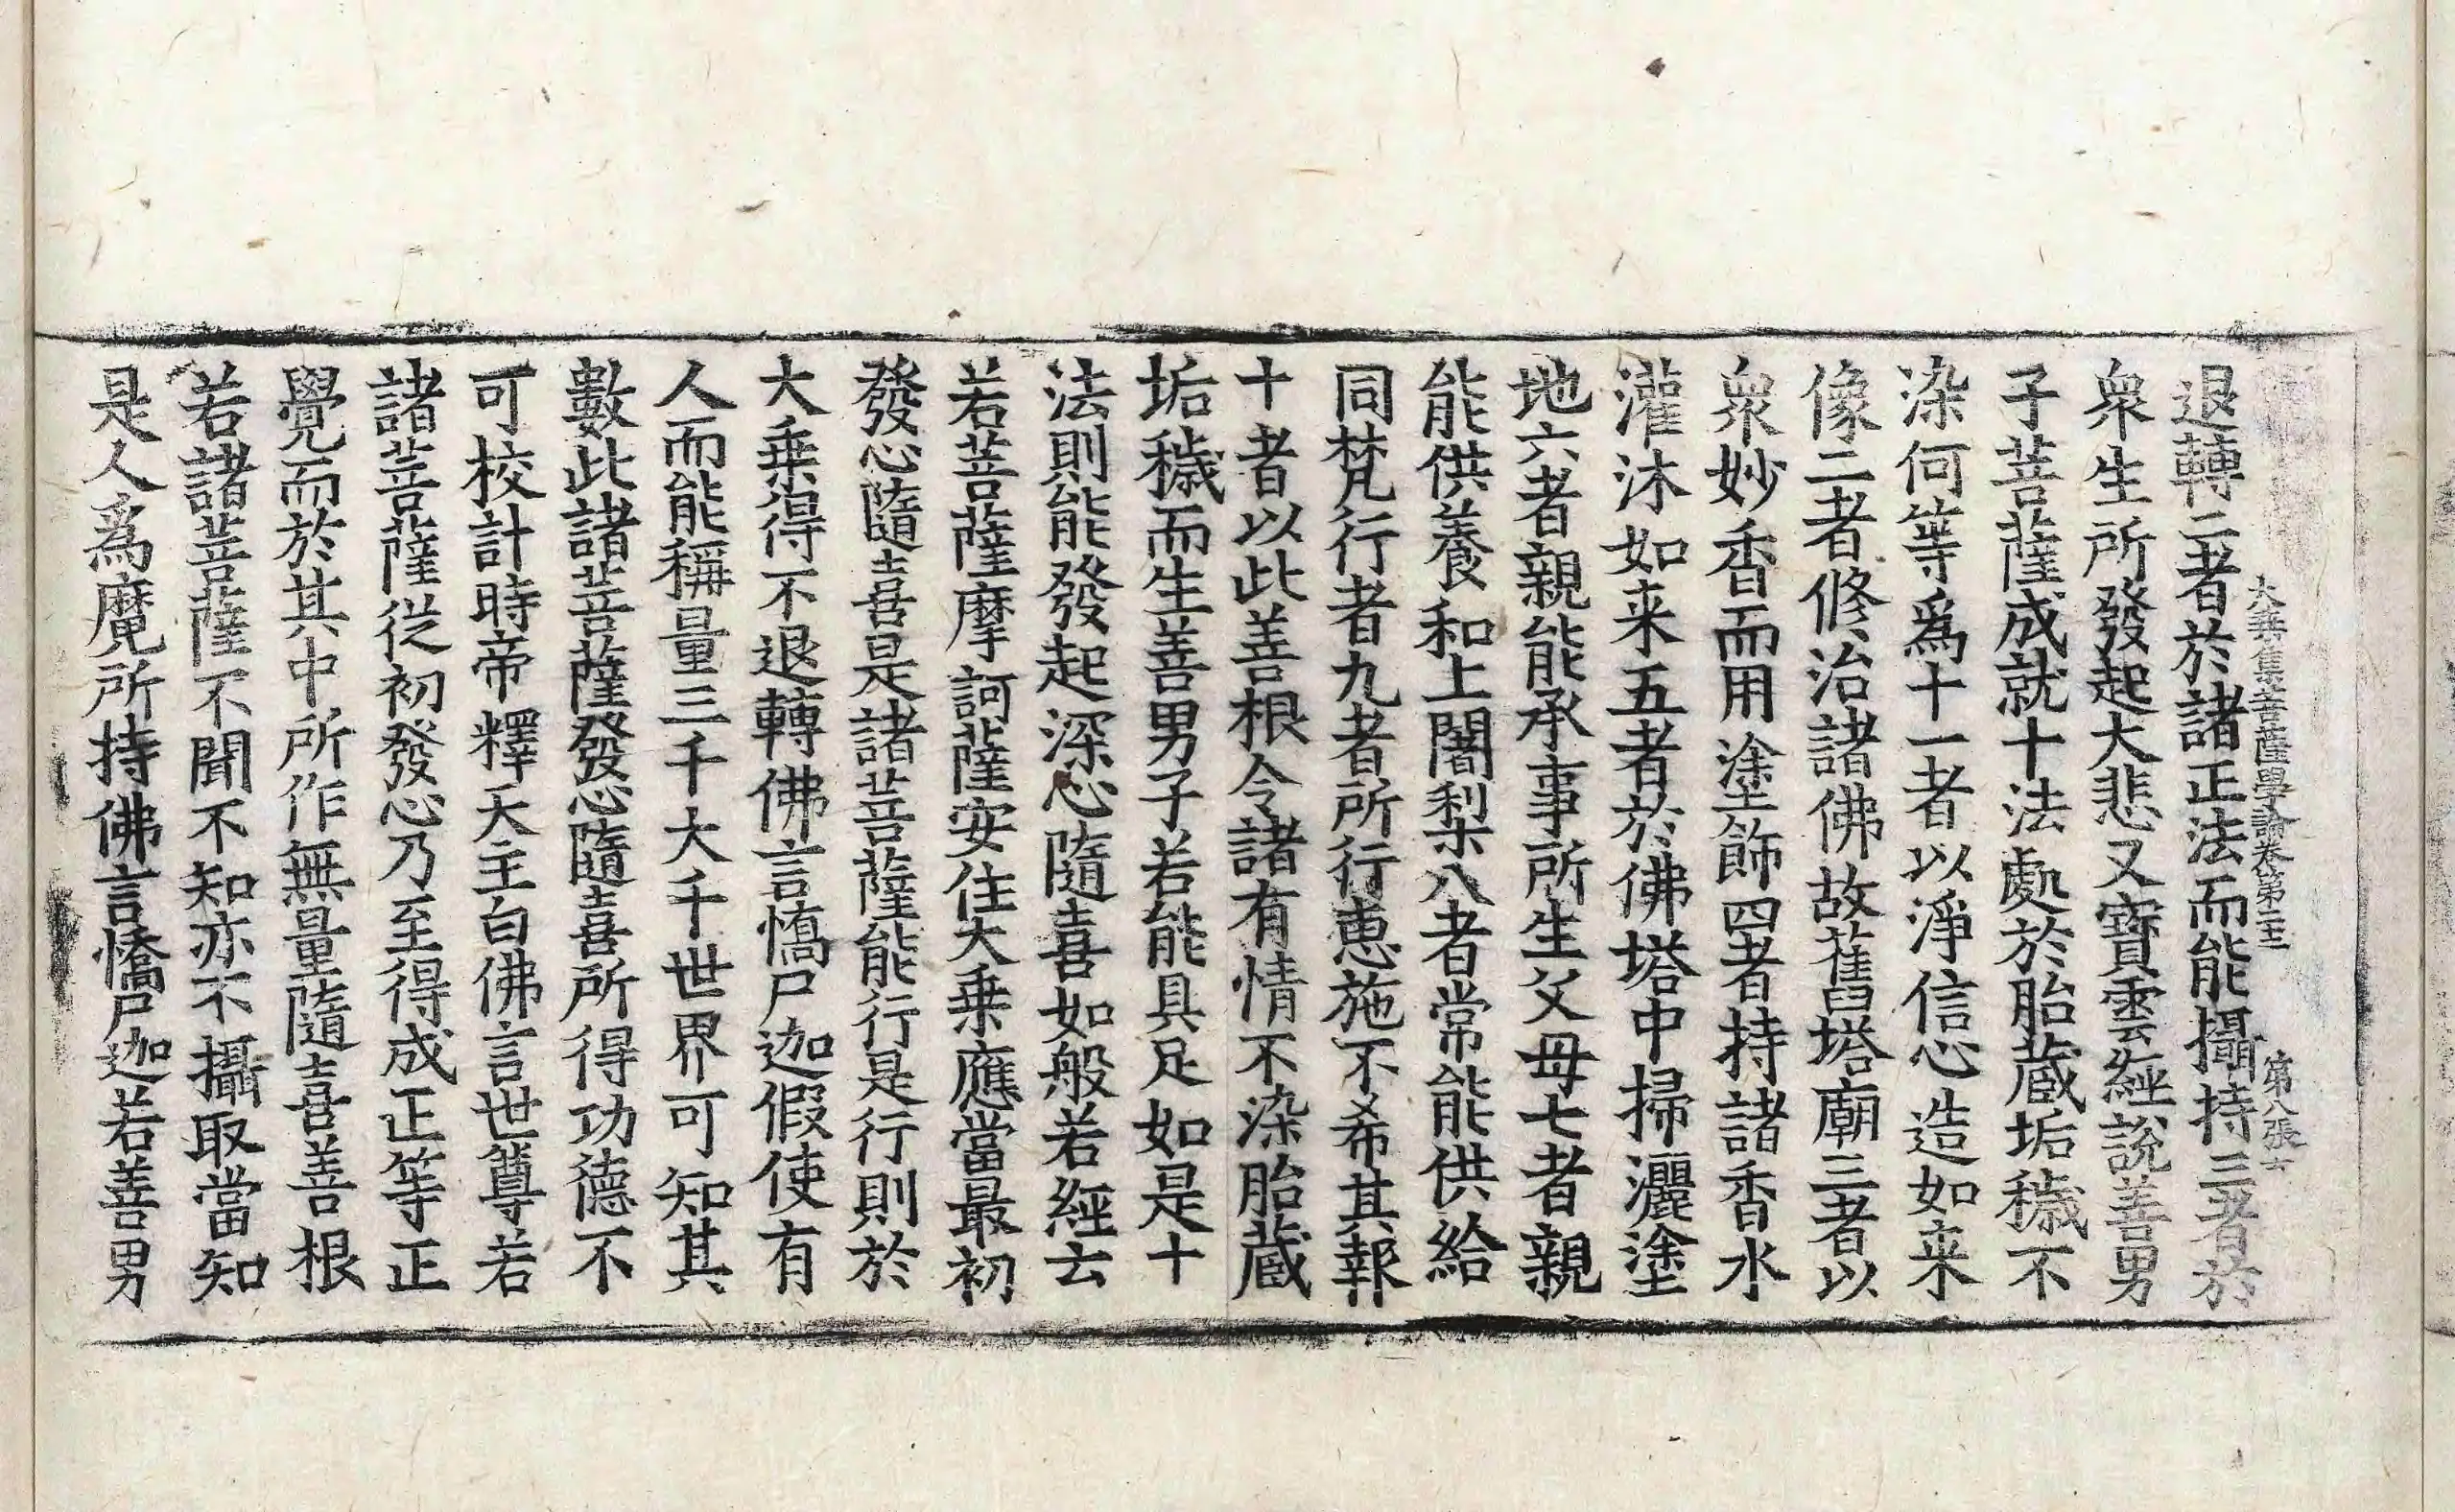 大乘集菩薩學論卷第二十三 第八張 士
退轉二者於諸正法而能攝持三者於
衆生所發起大悲又寶雲經說善男
子菩薩成就十法處於胎蔵垢穢不
染何等爲十一者以淨信心造如来
像二者修治諸佛故舊塔廟三者以
衆妙香而用塗飾四者持諸香水
灌沐如来五者於佛塔中掃灑塗
地六者親能承事所生父母七者親
能供養和上闍梨八者常能供給
同梵行者九者所行惠施不希其報
十者以此善根令諸有情不染胎蔵
垢穢而生善男子若能具足如是十
法則能發起深心隨喜如般若經云
若菩薩摩訶薩安住大乗應當最初
發心隨喜是諸菩薩能行是行則於
大乗得不退轉佛言憍尸迦假使有
人而能稱量三千大千世界可知其
數此諸菩薩發心隨喜所得功德不
可校計時帝釋天主白佛言世尊若
諸菩薩從初發心乃至得成正等正
覺而於其中所作無量隨喜善根
若諸菩薩不聞不知亦不攝取當知
是人爲魔所持佛言憍尸迦若善男